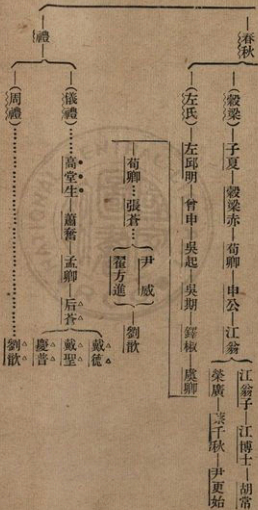 春秋
(穀梁)—子夏—穀梁赤—荀卿—申公—江翁
江翁子—江博士—胡常
榮廣—蔡千秋—尹更始
(左氏)—左邱明—曾申—吳起—吳期—鐸椒—虞卿
荀卿…張蒼…
尹咸
翟方進
劉歆
禮
(儀禮)…高堂生—蕭奮—孟卿—后蒼
戴德
戴聖
慶普
(周禮)…劉歆